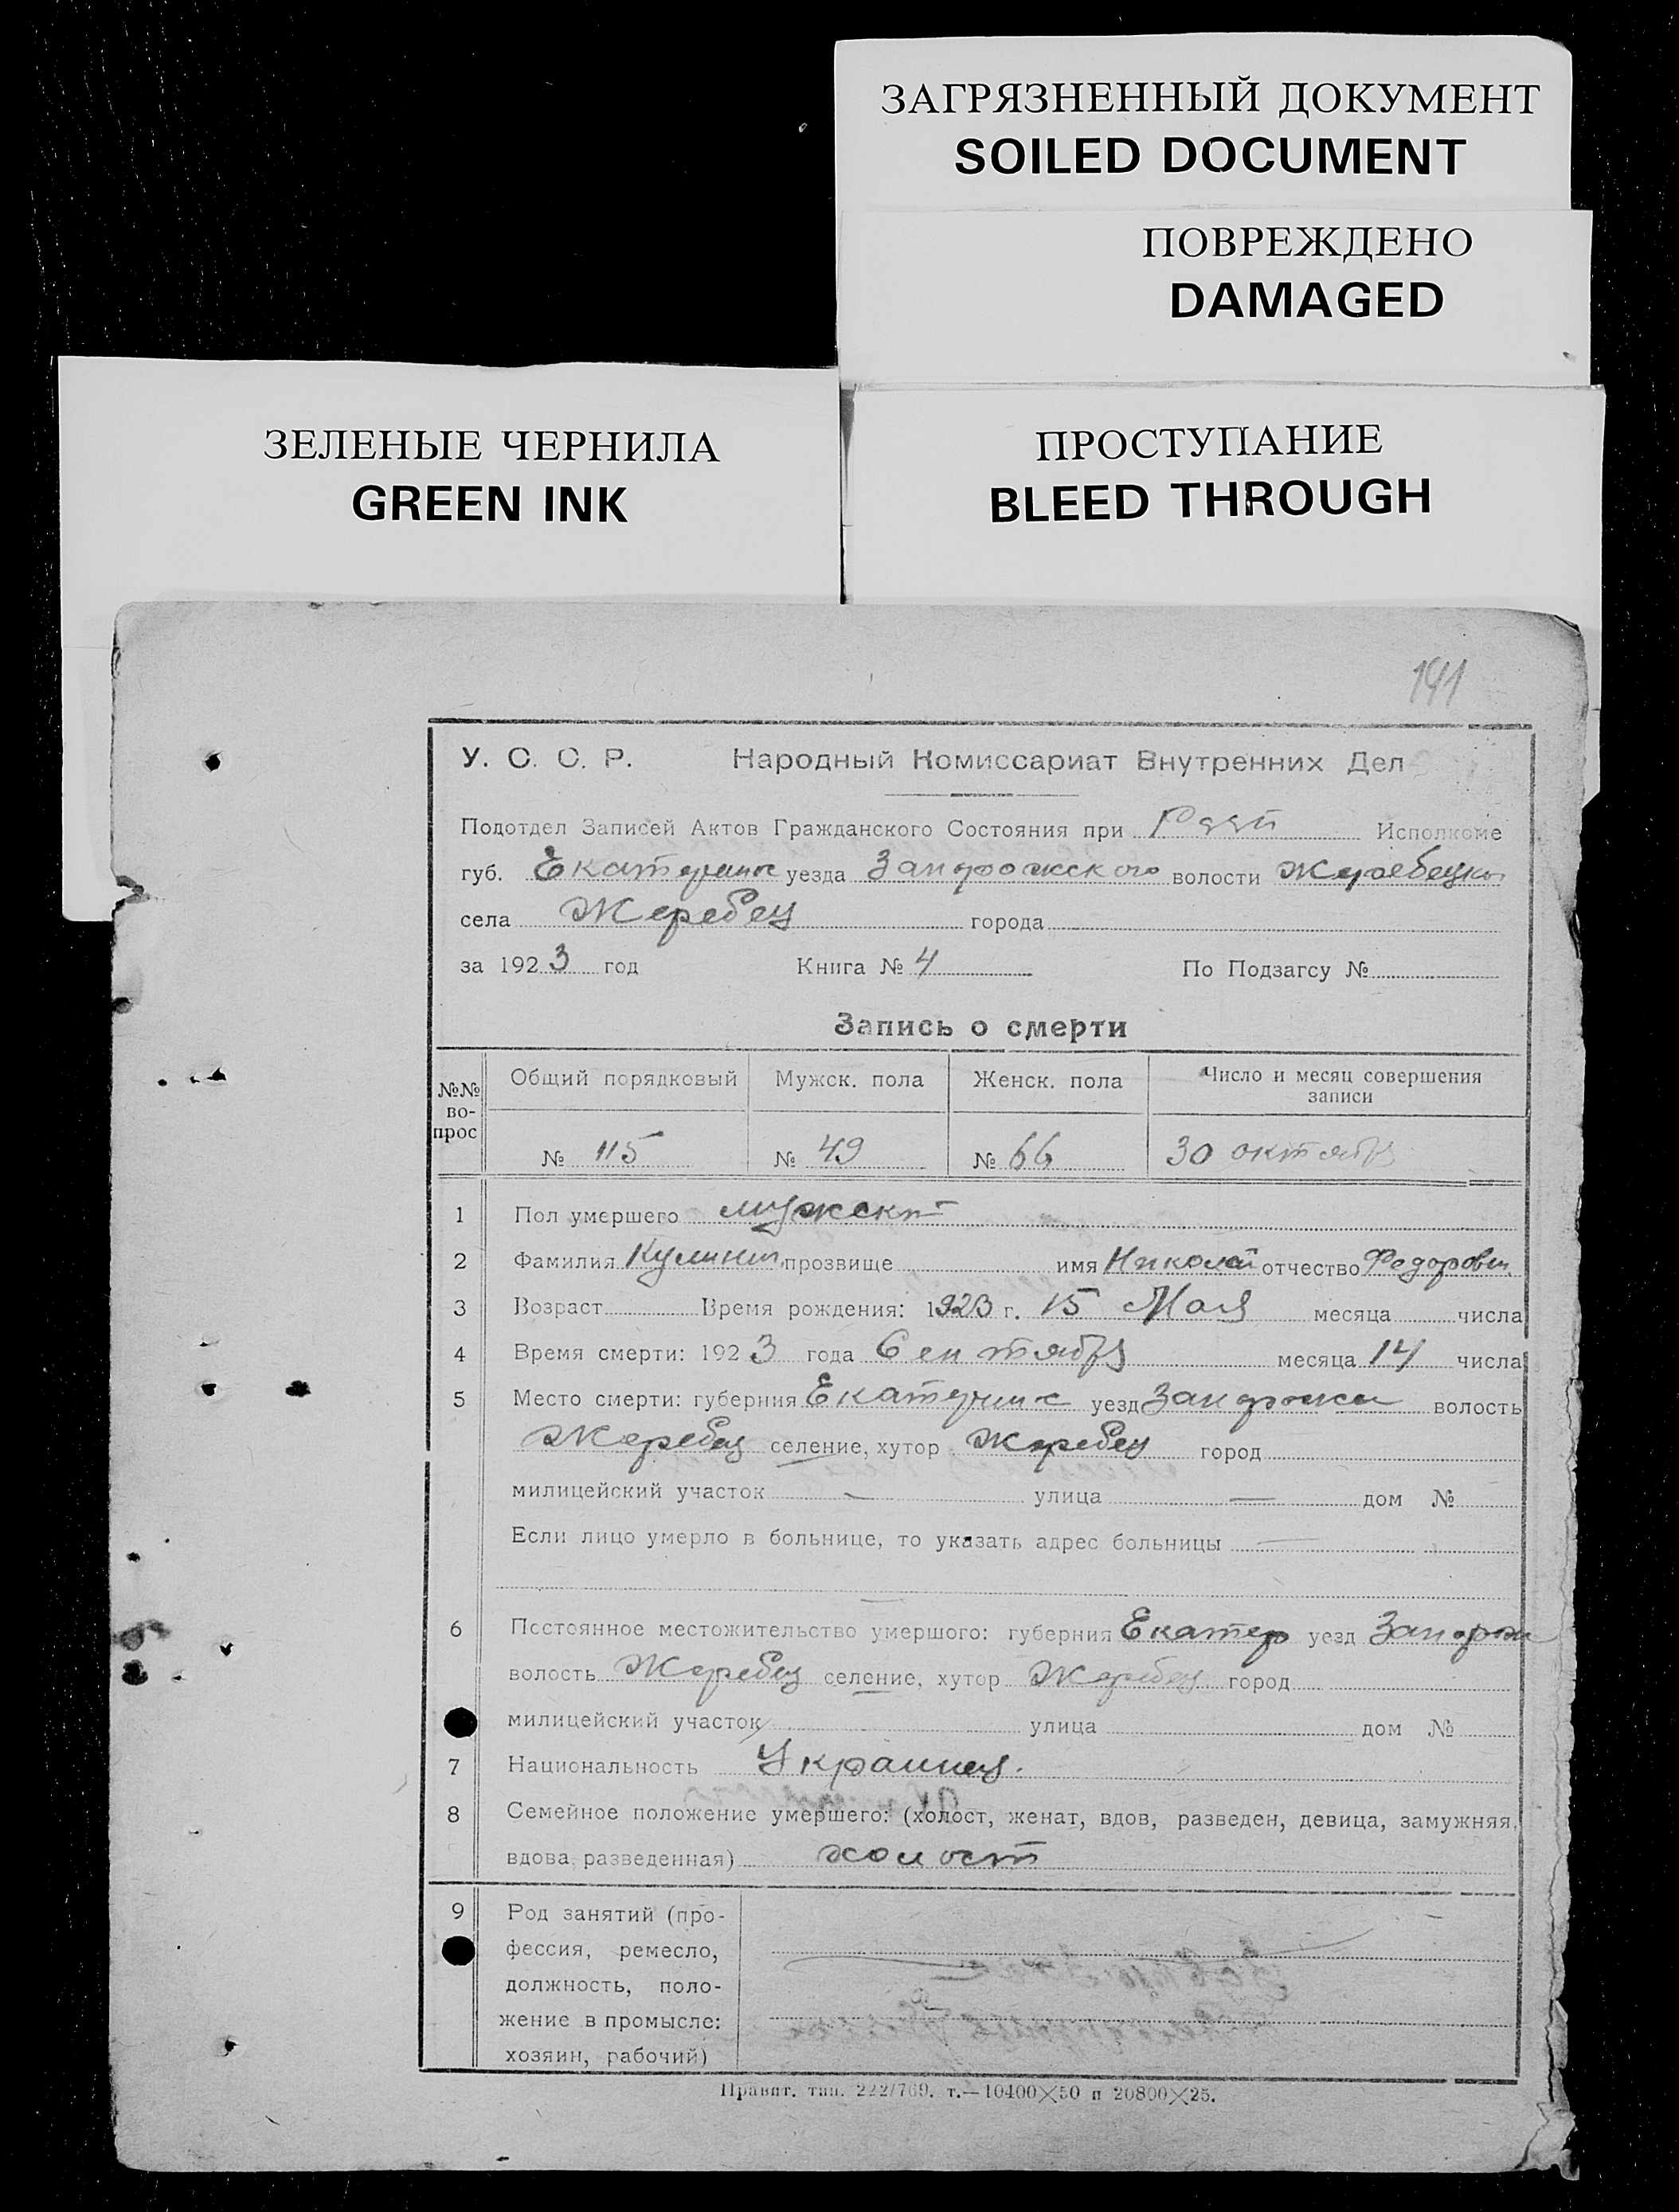 ЗАГРЯЗНЕННЫЙ ДОКУМЕНТ
SOILED DOCUMENT
ПОВРЕЖДЕНО
DAMAGED
ЗЕЛЕНЫЕ ЧЕРНИЛА
GREEN INK
ПРОСТУПАНИЕ
BLEED THROUGH
191
У. С. С. Р. Народный Комиссариат Внутренних Дел
Подотдел Записей Актов Гражданского Состояния при Исполкоме
губ. Екатерин уезда Запорожского волости Жеребецкой
села Жеребец города
за 1923 год Книга № 4 По Подзагсу №
Запись о смерти
№№ вопрос Общий порядковый Мужск. пола Женск. пола Число и месяц совершения записи
№ 115 № 49 № 66 30 октября
1 Пол умершего мужской
2 Фамилия прозвище имя Николай отчество Федорович
3 Возраст Время рождения: 1923 г. 15 Мая месяца числа
4 Время смерти: 1923 года Сентября месяца 14 числа
5 Место смерти: губерния Екатеринос уезд Запорожск волость
Жеребец селение, хутор Жеребец город
милицейский участок — улица — дом №
Если лицо умерло в больнице, то указать адрес больницы —
6 Постоянное местожительство умершого: губерния Екатер уезд Запорож
волость Жеребец селение, хутор Жеребец город
милицейский участок улица дом №
7 Национальность Украинец.
8 Семейное положение умершего: (холост, женат, вдов, разведен, девица, замужняя,
вдова, разведенная) холост
9 Род занятий (про-
фессия, ремесло,
должность, поло-
жение в промысле:
хозяин, рабочий)
Правит. тип. 222/769. т.—10400×50 и 20800×25.